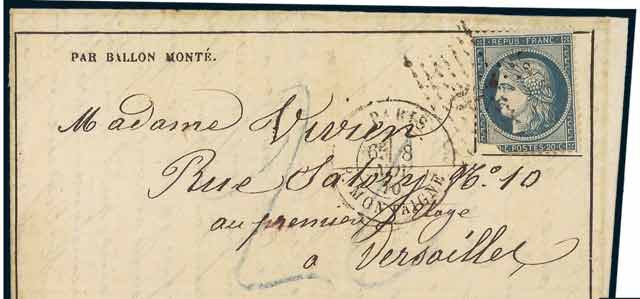 PAR BALLON MONTÉ.
REPUB. FRANC.
POSTES 20 C.
Madame Vivien
PARIS
6E 8
70
R. MONTAIGNE
Rue Satory No. 10
au premier Etage
à Versailles